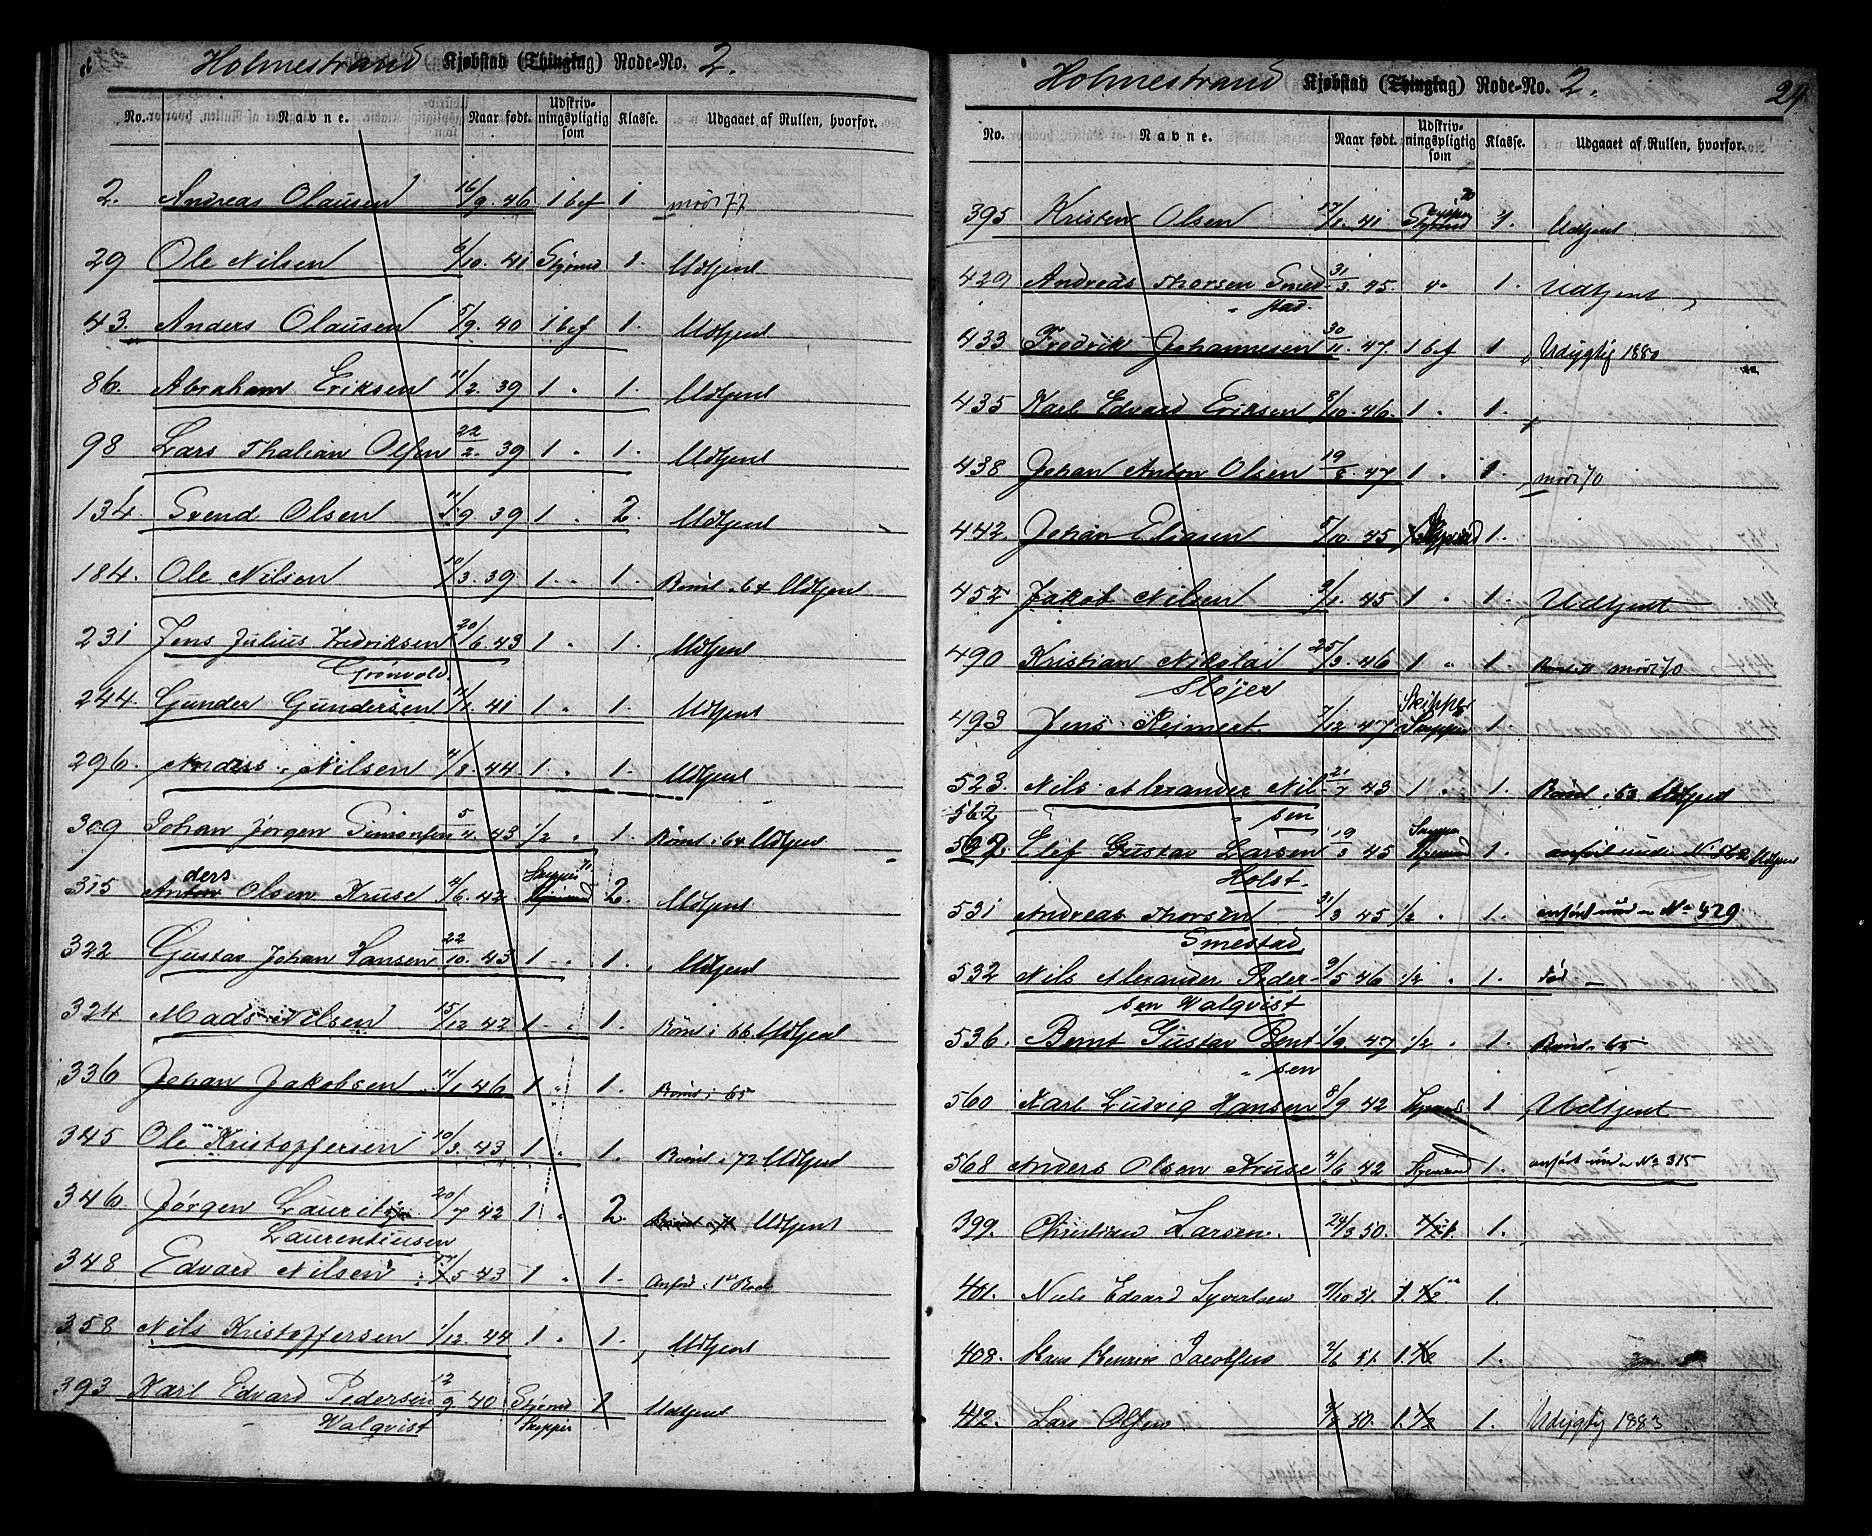 Holmestrand Kjøbstad (Thinglag) Rode-No. 2.
No. Navne. Naar født. Udskrivningspligtig som Klasse. Udgaaet af Rullen, hvorfor.
2. Andreas Olausen 16/9. 46 1 bef 1 mødt 77
29 Ole Nilsen 6/10. 41 Styrmd 1. Udtjent
43. Anders Olausen 5/9. 40 1 bef 1. Udtjent
86. Abraham Eriksen 11/2. 39 1 " 1. Udtjent
98 Lars Thalian Olsen 22/2. 39 1 " 1. Udtjent
134. Svend Olsen 11/9 39 1 " 2. Udtjent
184. Ole Nilsen 10/3. 39 1 " 1. Rømt i 64 Udtjent
231 Jens Julius Fredriksen 20/6. 43 1 " 1. Udtjent
Grønvold
244. Gunder Gundersen 11/1. 41 1 " 1. Udtjent
296. Anders Nilsen 4/8. 44 1 " 1. Udtjent
309 Johan Jørgen Simonsen 5/4. 43 1/2 " 1. Rømt i 64 Udtjent
ders
315 Anton Olsen Kruse 4/6. 42 Styrmand 2. Udtjent
322 Gustav Johan Hansen 22/10. 43 1 " 1. Udtjent
324 Mads Nilsen 15/12 42 1 " 1. Rømt i 66. Udtjent
336 Johan Jakobsen 11/1 46 1 " 1. Rømt i 65
345 Ole Kristoffersen 10/3. 43 1 " 1. Rømt i 72 Udtjent
346 Jørgen Lauritz 20/7 42 1 " 2. Udtjent
Laurentiusen
348 Edvard Nilsen 17/5 43 1 " 1. Anført i 1ste Rode
358 Nils Kristoffersen 1/12. 44 1 " 1. Udtjent
393 Karl Edvard Pedersen 12/9 40 Styrmd 1 Udtjent
Walqvist Skipper
Holmestrand Kjøbstad (Thinglag) Rode-No. 2. 24.
No. Navne. Naar født. Udskrivningspligtig som Klasse. Udgaaet af Rullen, hvorfor.
395 Kristen Olsen 17/1. 41 Styrmd 1. Udtjent
429 Andreas Thorsen Smed 31/3. 45 1. Udtjent
" stad.
433 Fredrik Johannesen 30/11. 47. 1 bef 1 Udygtig 1880
435 Karl Edvard Eriksen 8/10. 46. 1 " 1.
438 Johan Anton Olsen 19/8. 47 1 " 1. mødt 70
442. Johan Eliasen 5/10. 45 1.
452 Jakob Nilsen 9/1. 45 1 " 1. Udtjent
490 Kristian Nikolai 25/3. 46 1 " 1. mødt 70
Sløjer Skipper
493 Jens Reimert. 7/12 47 1.
523. Nils Alexander Nil 21/7 43 1 " 1. Rømt i 63 Udtjent
562 " sen
567. Elef Gustav Larsen 19/3 45 1. anført under No 562 Udtjent
Holst.
531 Andreas Thorsen 31/3 45 1/2 " 1. anført under No 429
Smestad
532 Nils Alexander Peder 9/5 46 1/2 " 1. Død
sen Walqvist
536. Bernt Gustav Bent 1/9. 47 1/2 " 1. Rømt i 65
" sen
560 Karl Ludvig Hansen 8/9 42 Styrmd 1 Udtjent
568 Anders Olsen Kruse 4/6 42 Styrmand 1. anført under No 315
399. Christian Larsen. 24/3 50. 1.
401. Niels Edvard Syvertsen 1.
408. Hans Henrik Jacobsen 1.
412. Lars Olsen 1. Udygtig 1883